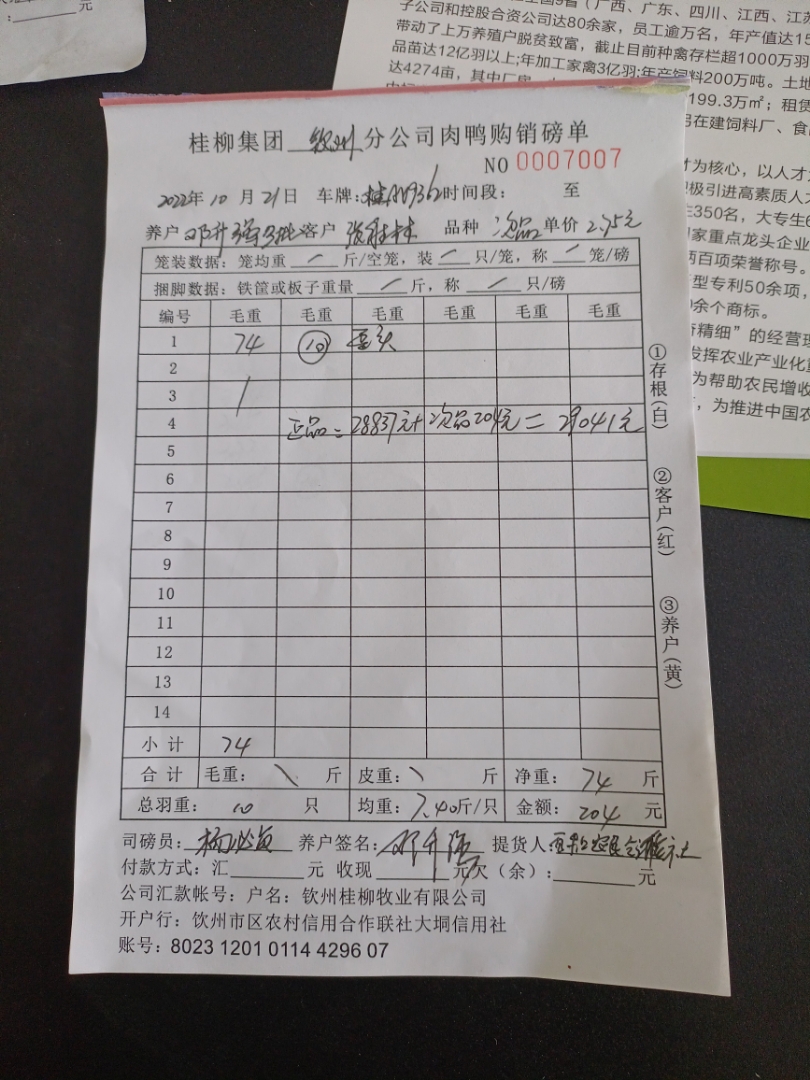 元
:
元
子公司和控股合资公司达80余家，员工逾万名，年产值达15
带动了上万养殖户脱贫致富，截止目前种禽存栏超1000万羽
品苗达12亿羽以上;年加工家禽3亿羽;年产饲料200万吨。土地
达4274亩，其中厂房
199.3万㎡；租赁
另在建饲料厂、食
才为核心，以人才
积极引进高素质人
生350名，大专生6
国家重点龙头企业
两百项荣誉称号。
型专利50余项，
余个商标。
奇精细”的经营理
发挥农业产业化
为帮助农民增收
，为推进中国农
桂柳集团 钦州 分公司肉鸭购销磅单
NO 0007007
2022年 10 月 21日 车牌: 时间段: 至
养户 邓升强 客户 品种 次品 单价 2.75元
笼装数据: 笼均重 斤/空笼, 装 只/笼, 称 笼/磅
捆脚数据: 铁筐或板子重量 斤, 称 只/磅
编号 毛重 毛重 毛重 毛重 毛重 毛重
1 74 10
2
3
4 正品=28837元+次品204元=29041元
5
6
7
8
9
10
11
12
13
14
小计 74
合计 毛重: 斤 皮重: 斤 净重: 74 斤
总羽重: 10 只 均重: 7.40斤/只 金额: 204 元
司磅员: 养户签名: 邓升强 提货人:
付款方式: 汇 元 收现 元欠(余): 元
公司汇款帐号: 户名: 钦州桂柳牧业有限公司
开户行: 钦州市区农村信用合作联社大垌信用社
账号: 8023 1201 0114 4296 07
①存根(白)
②客户(红)
③养户(黄)